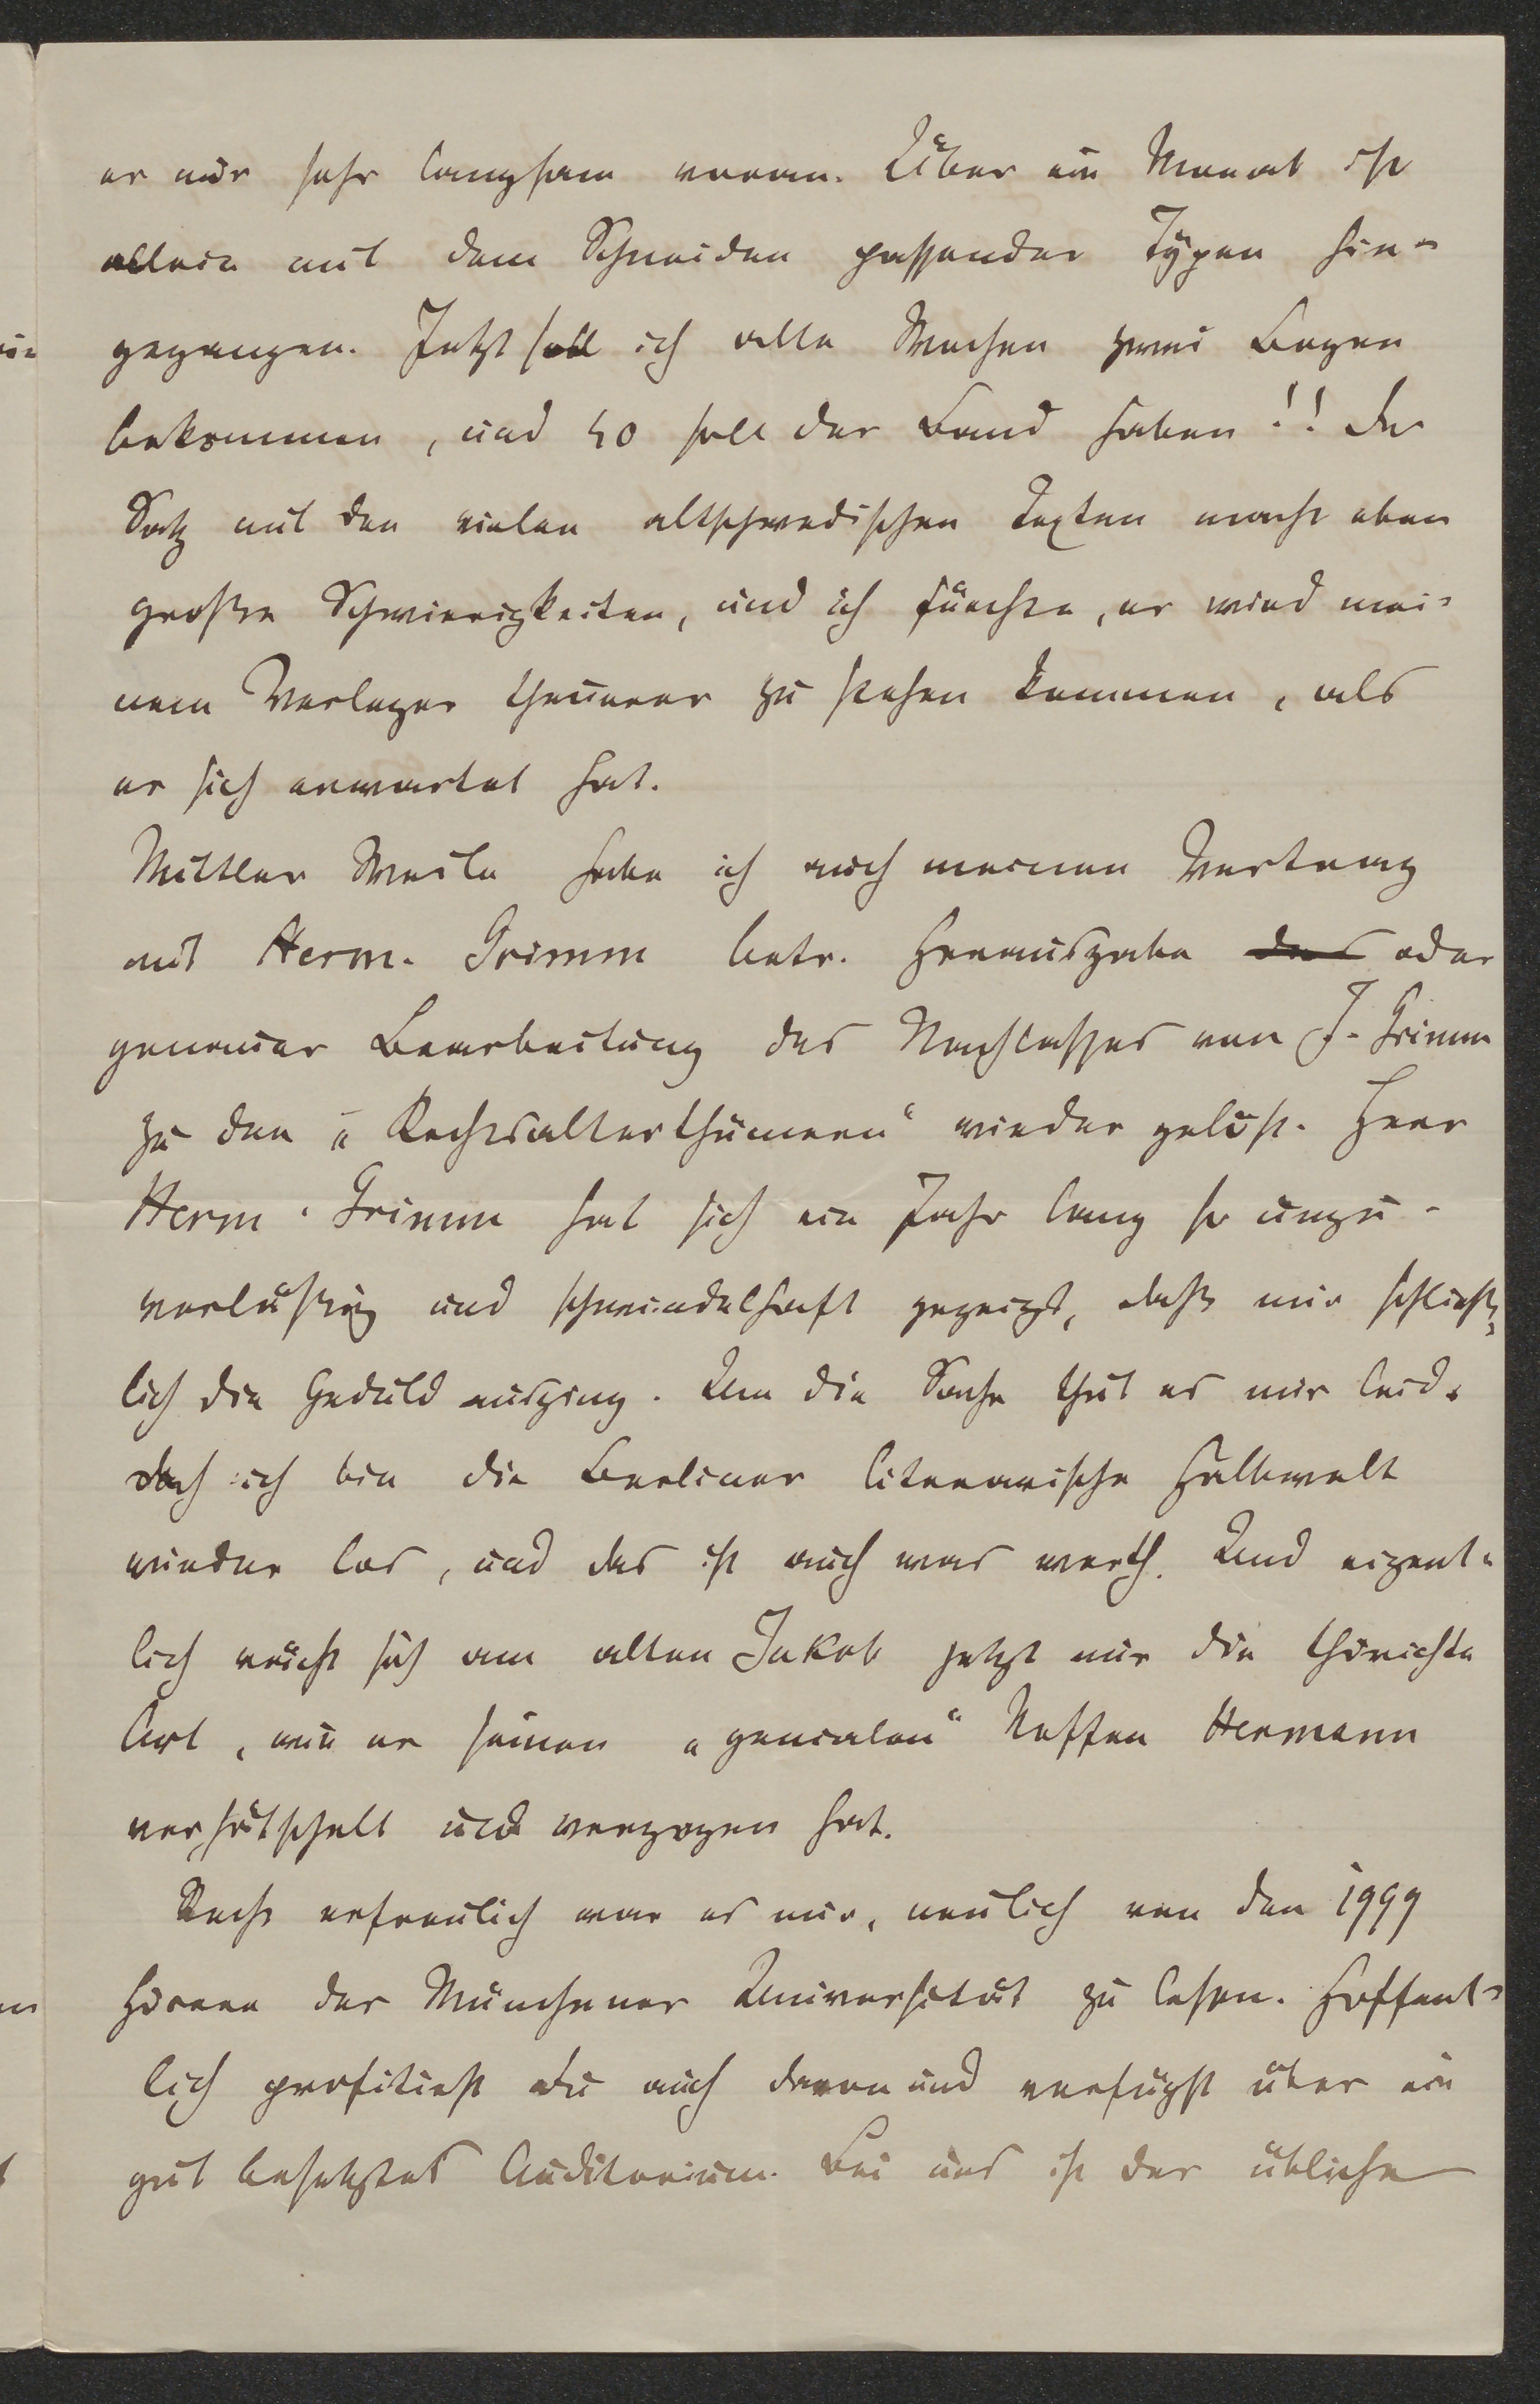 er nur sehr langsam voran. Über ein Monat ist
allein mit dem Schneiden passender Typen hin-
gegangen. Jetzt soll ich alle Wochen zwei Bogen
bekommen, und 40 soll der Band haben!! Der
Satz mit den vielen altschwedischen Texten macht eben
große Schwierigkeiten, und ich fürchte, er wird mei-
nem Verleger theuerer zu stehen kommen, als
er sich erwartet hat.
Mittler Weile habe ich auch meinen Vertrag
mit Herm. Grimm betr. Herausgabe des oder
genauer Bearbeitung des Nachlasses von J. Grimm
zu den „Rechtsalterthümern“ wieder gelöst. Herr
Herm. Grimm hat sich ein Jahr lang so unzu-
verlässig und schwindelhaft gezeigt, daß mir schließ-
lich die Geduld ausging. Um die Sache thut es mir leid.
doch ich bin die Berliner literarische Halbwelt
wieder los, und das ist auch was werth. Und eigent-
lich rächt sich am alten Jakob jetzt nur die thörichte
Art, wie er seinen „genialen“ Neffen Hermann
verhätschelt und verzogen hat.
Recht erfreulich war es mir, neulich von den 1999
Hörern der Münchener Universität zu lesen. Hoffent-
lich profitirst du auch davon und verfügst über ein
gut besetztes Auditorium. Bei uns ist der übliche